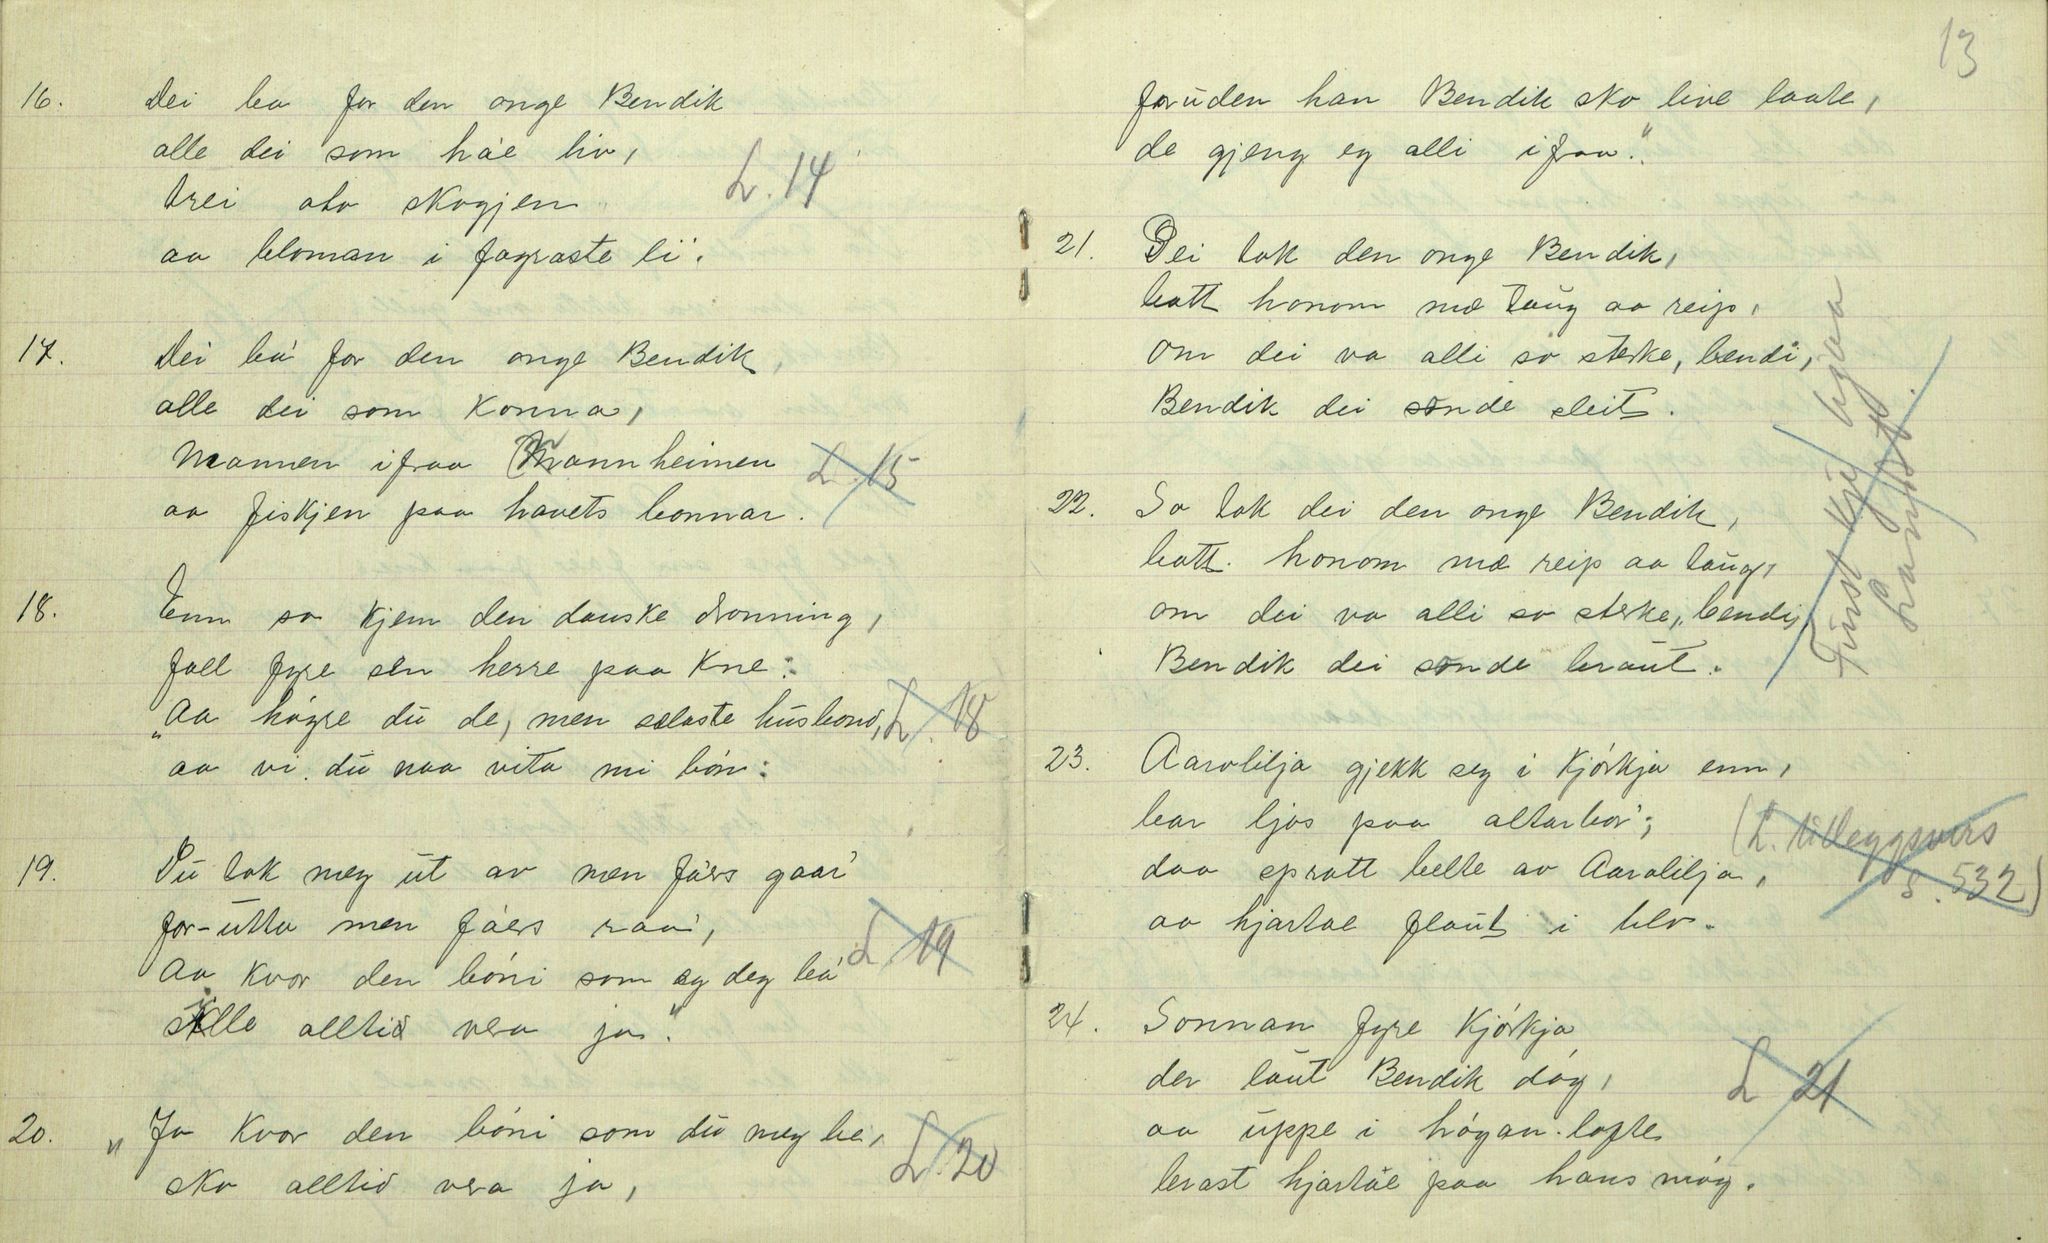 16. Dei ba for den onge Bendik
alle dei som háe liv,
L. 14
trei ato skogjen
aa bloman i fagraste li'.
17. Dei ba' for den onge Bendik,
alle dei som konna,
Mannen ifraa Mannheimen
L. 15
aa fiskjen paa havets bonnar.
18. Enn so kjem den danske dronning,
fall fyre sin herre paa kne:
„Aa høyre du de, men sælaste husbond,
L. 18
aa vi du naa vita mi bón:
19. Du tok meg ut av men fáers gaar'
for-utta men fáers raa',
L 19
Aa kvor den bóni som eg deg ba'
skulle alltid vera ja."
20. „Ja kvor den bóni som du meg be,
L. 20
sko alltid vera ja,
13
foruden han Bendik sko live laate,
de gjeng eg alli ifraa."
21. Dei tok den onge Bendik,
batt honom mæ taug aa reip,
om dei va alli so sterke, bendi,
Bendik dei sonde sleit.
22. So tok dei den onge Bendik,
batt honom mæ reip aa taug,
om dei va alli so sterke, bendi,
Bendik dei sonde braut.
Finst kje hjaa
Landst.
23. Aarolilja gjekk seg i kjórkja enn,
bar ljos paa altarbor';
(L. tilleggsvers
s. 532)
daa spratt belte av Aarolilja,
aa hjartae flaut i blo.
24. Sonnan fyre kjórkja
der laut Bendik dóy,
L 21
aa uppe i hógan-lofte
brast hjartae paa hans móy.